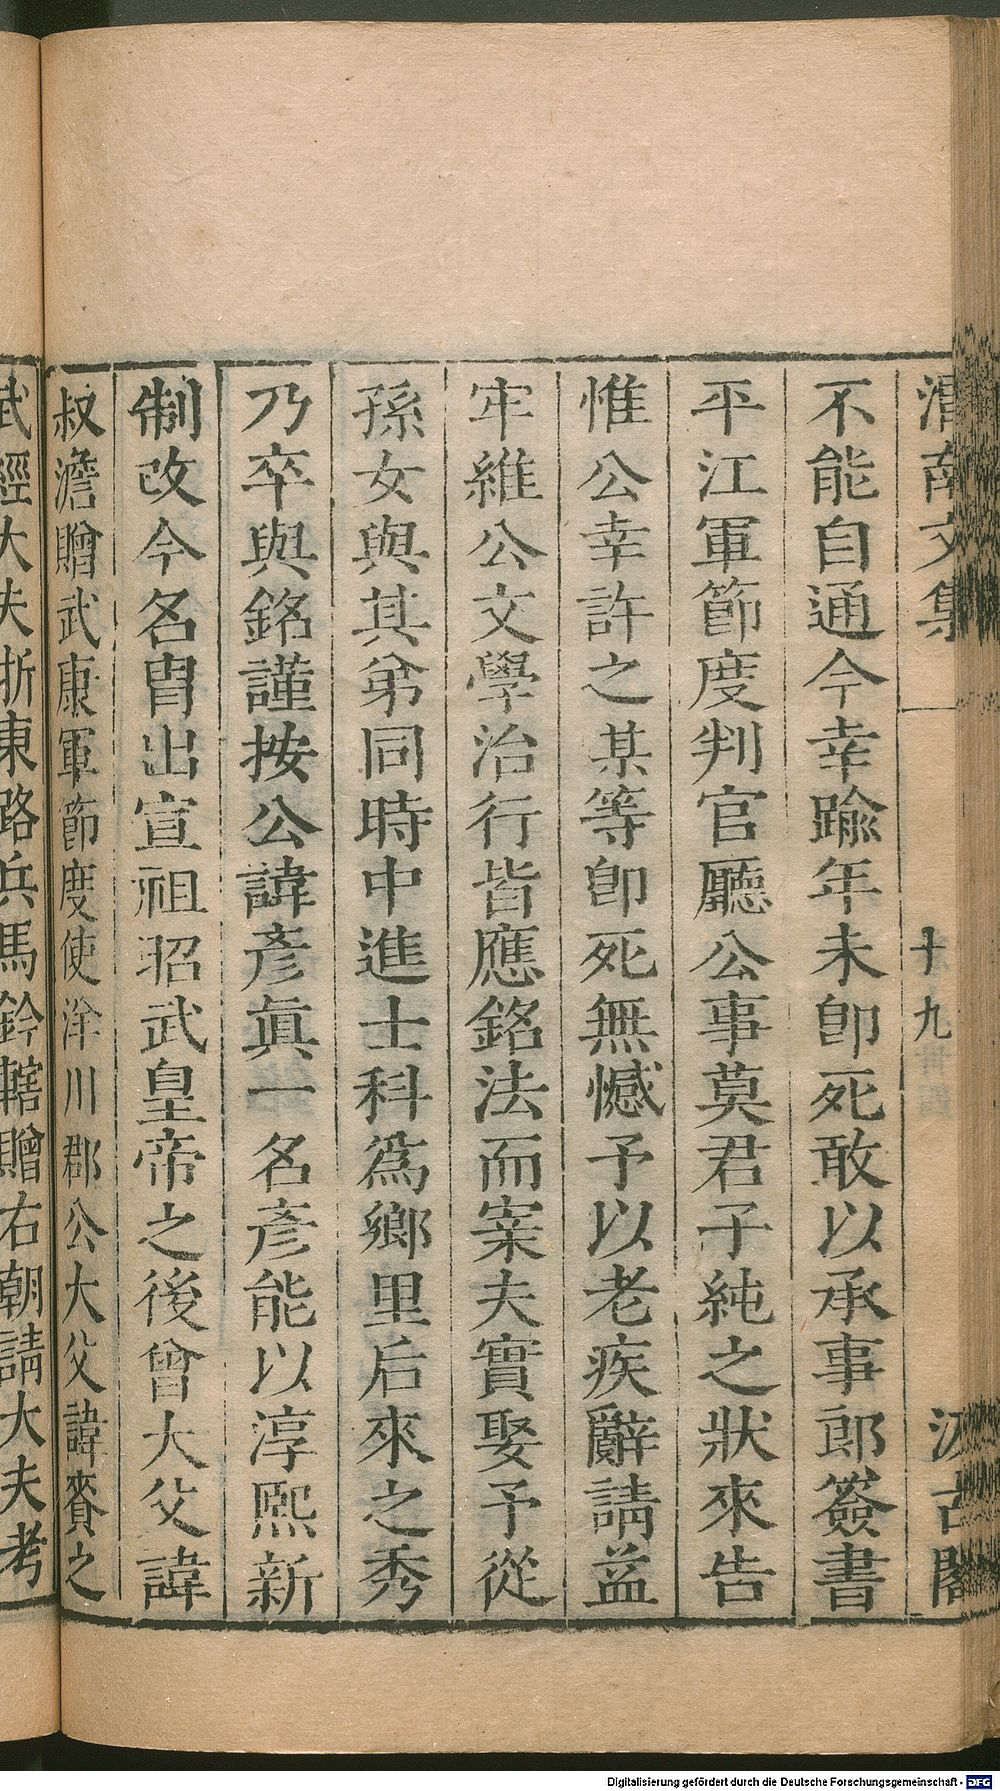 渭南文集 十九 汲古閣
不能自通今幸踰年未卽死敢以承事郎簽書
平江軍節度判官廳公事莫君子純之狀來告
惟公幸許之某等卽死無憾予以老疾辭請益
牢維公文學治行皆應銘法而案夫實娶予從
孫女與其弟同時中進士科爲鄉里后來之秀
乃卒與銘謹按公諱彥眞一名彥能以淳熙新
制改今名胄出宣祖昭武皇帝之後曾大父諱
叔澹贈武康軍節度使洋川郡公大父諱賚之
武經大夫浙東路兵馬鈐轄贈右朝請大夫考
Digitalisierung gefördert durch die Deutsche Forschungsgemeinschaft - DFG